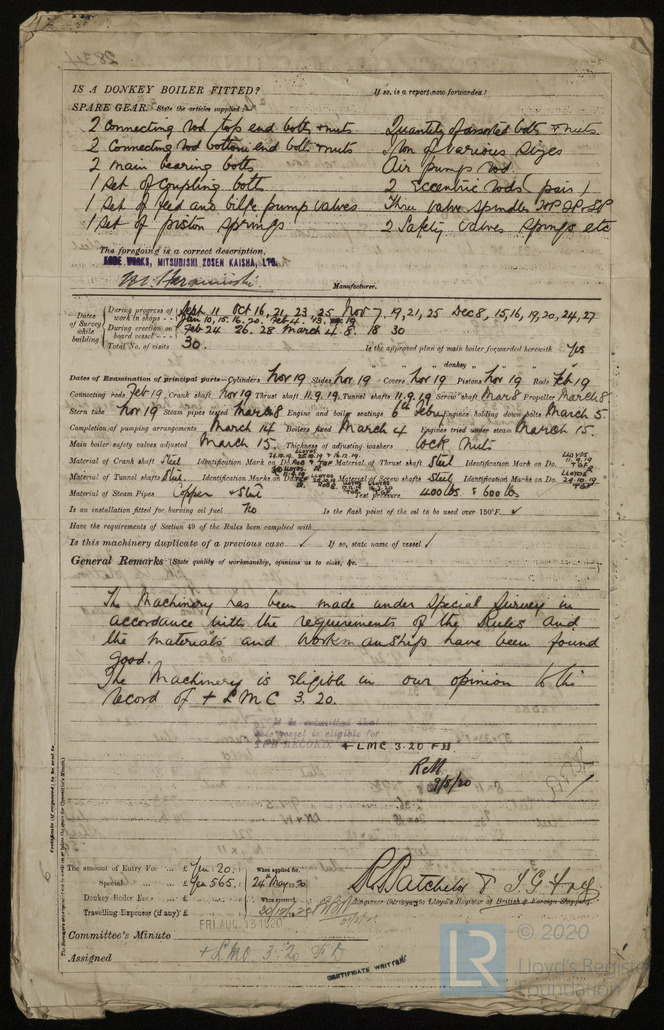 IS A DONKEY BOILER FITTED? If so, is a report now forwarded?
SPARE GEAR. State the articles supplied:
2 Connecting rod top end bolts & nuts Quantity of assorted bolts & nuts
2 Connecting rod bottom end bolts & nuts Iron of various sizes
2 main bearing bolts Air pump rod
1 Set of coupling bolts 2 Eccentric rods (pair)
1 Set of feed and bilge pump valves Three valve spindles H.P. I.P. & L.P.
1 Set of piston springs 2 Safety valves springs etc
The foregoing is a correct description,
KOBE WORKS, MITSUBISHI ZOSEN KAISHA, LTD.
Manufacturer.
Dates of Survey while building
During progress of work in shops - - Sept. 11 Oct 16, 21, 23, 25, Nov 7, 19, 21, 25 Dec 8, 15, 16, 19, 20, 24, 27
Jan 10, 15, 16, 20. Feb 4. 13.
During erection on board vessel - - - Feb 24 26. 28 March 4. 8. 18 30
Total No. of visits 30. Is the approved plan of main boiler forwarded herewith Yes
" " " donkey " " "
Dates of Examination of principal parts—Cylinders Nov 19 Slides Nov 19 Covers Nov 19 Pistons Nov 19 Rods Feb 19
Connecting rods Feb 19 Crank shaft Nov 19 Thrust shaft 11.9.19 Tunnel shafts 11.9.19 Screw shaft Mar 8 Propeller March 8.
Stern tube Nov 19 Steam pipes tested March 8 Engine and boiler seatings 6th Febru Engines holding down bolts March 5.
Completion of pumping arrangements March 14 Boilers fixed March 4 Engines tried under steam March 15.
Main boiler safety valves adjusted March 15. Thickness of adjusting washers lock nuts
Material of Crank shaft Steel Identification Mark on Do. Material of Thrust shaft Steel Identification Mark on Do. LLOYDS 11.9.19 TGF
Material of Tunnel shafts Steel Identification Marks on Do. Material of Screw shafts Steel Identification Marks on Do. LLOYDS 24.10.19 TGF
Material of Steam Pipes Copper & Steel Test pressure 400 lbs & 600 lbs
Is an installation fitted for burning oil fuel No Is the flash point of the oil to be used over 150°F. ✓
Have the requirements of Section 49 of the Rules been complied with
Is this machinery duplicate of a previous case ✓ If so, state name of vessel ✓
General Remarks (State quality of workmanship, opinions as to class, &c.
The Machinery has been made under Special Survey in
accordance with the requirements of the Rules and
the materials and workmanship have been found
good.
The Machinery is eligible in our opinion to the
record of + LMC 3. 20.
It is submitted that
this vessel is eligible for
THE RECORD. + LMC 3.20 FD.
9/8/20
Certificate (if required) to be sent to
The amount of Entry Fee ... £ Yen 20. When applied for,
Special ... £ Yen 565. 24 May 1920
Donkey Boiler Fee ... £ When received,
Travelling Expenses (if any) £
R. Batchelor & T.G. Foley
Engineer Surveyor to Lloyd's Register of British & Foreign Shipping.
FRI. AUG. 13 1920
Committee's Minute
Assigned + LMC 3.20 FD
CERTIFICATE WRITTEN
LR © 2020
Lloyd's Register
Foundation